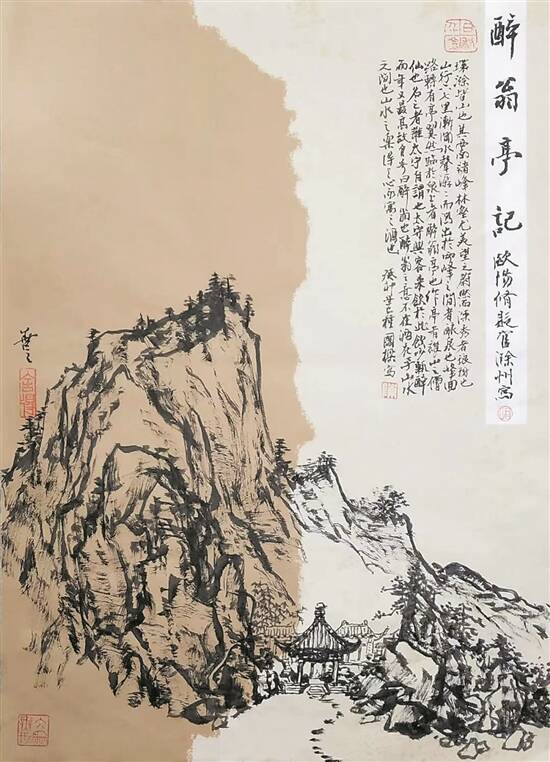 醉翁亭記 欧陽脩貶官滁州寫
環滁皆山也其西南諸峰林壑尤美望之蔚然而深秀者琅琊也
山行六七里漸聞水聲潺々而瀉出於兩峰之間者釀泉也峰回
路轉有亭翼然臨於泉上者醉翁亭也作亭者誰山之僧
仙也名之者誰太守自謂也太守與客來飲於此飲少輒醉
而年又最高故自号曰醉翁也醉翁之意不在酒在乎山水
之間也山水之樂得之心而寓之酒也 癸卯